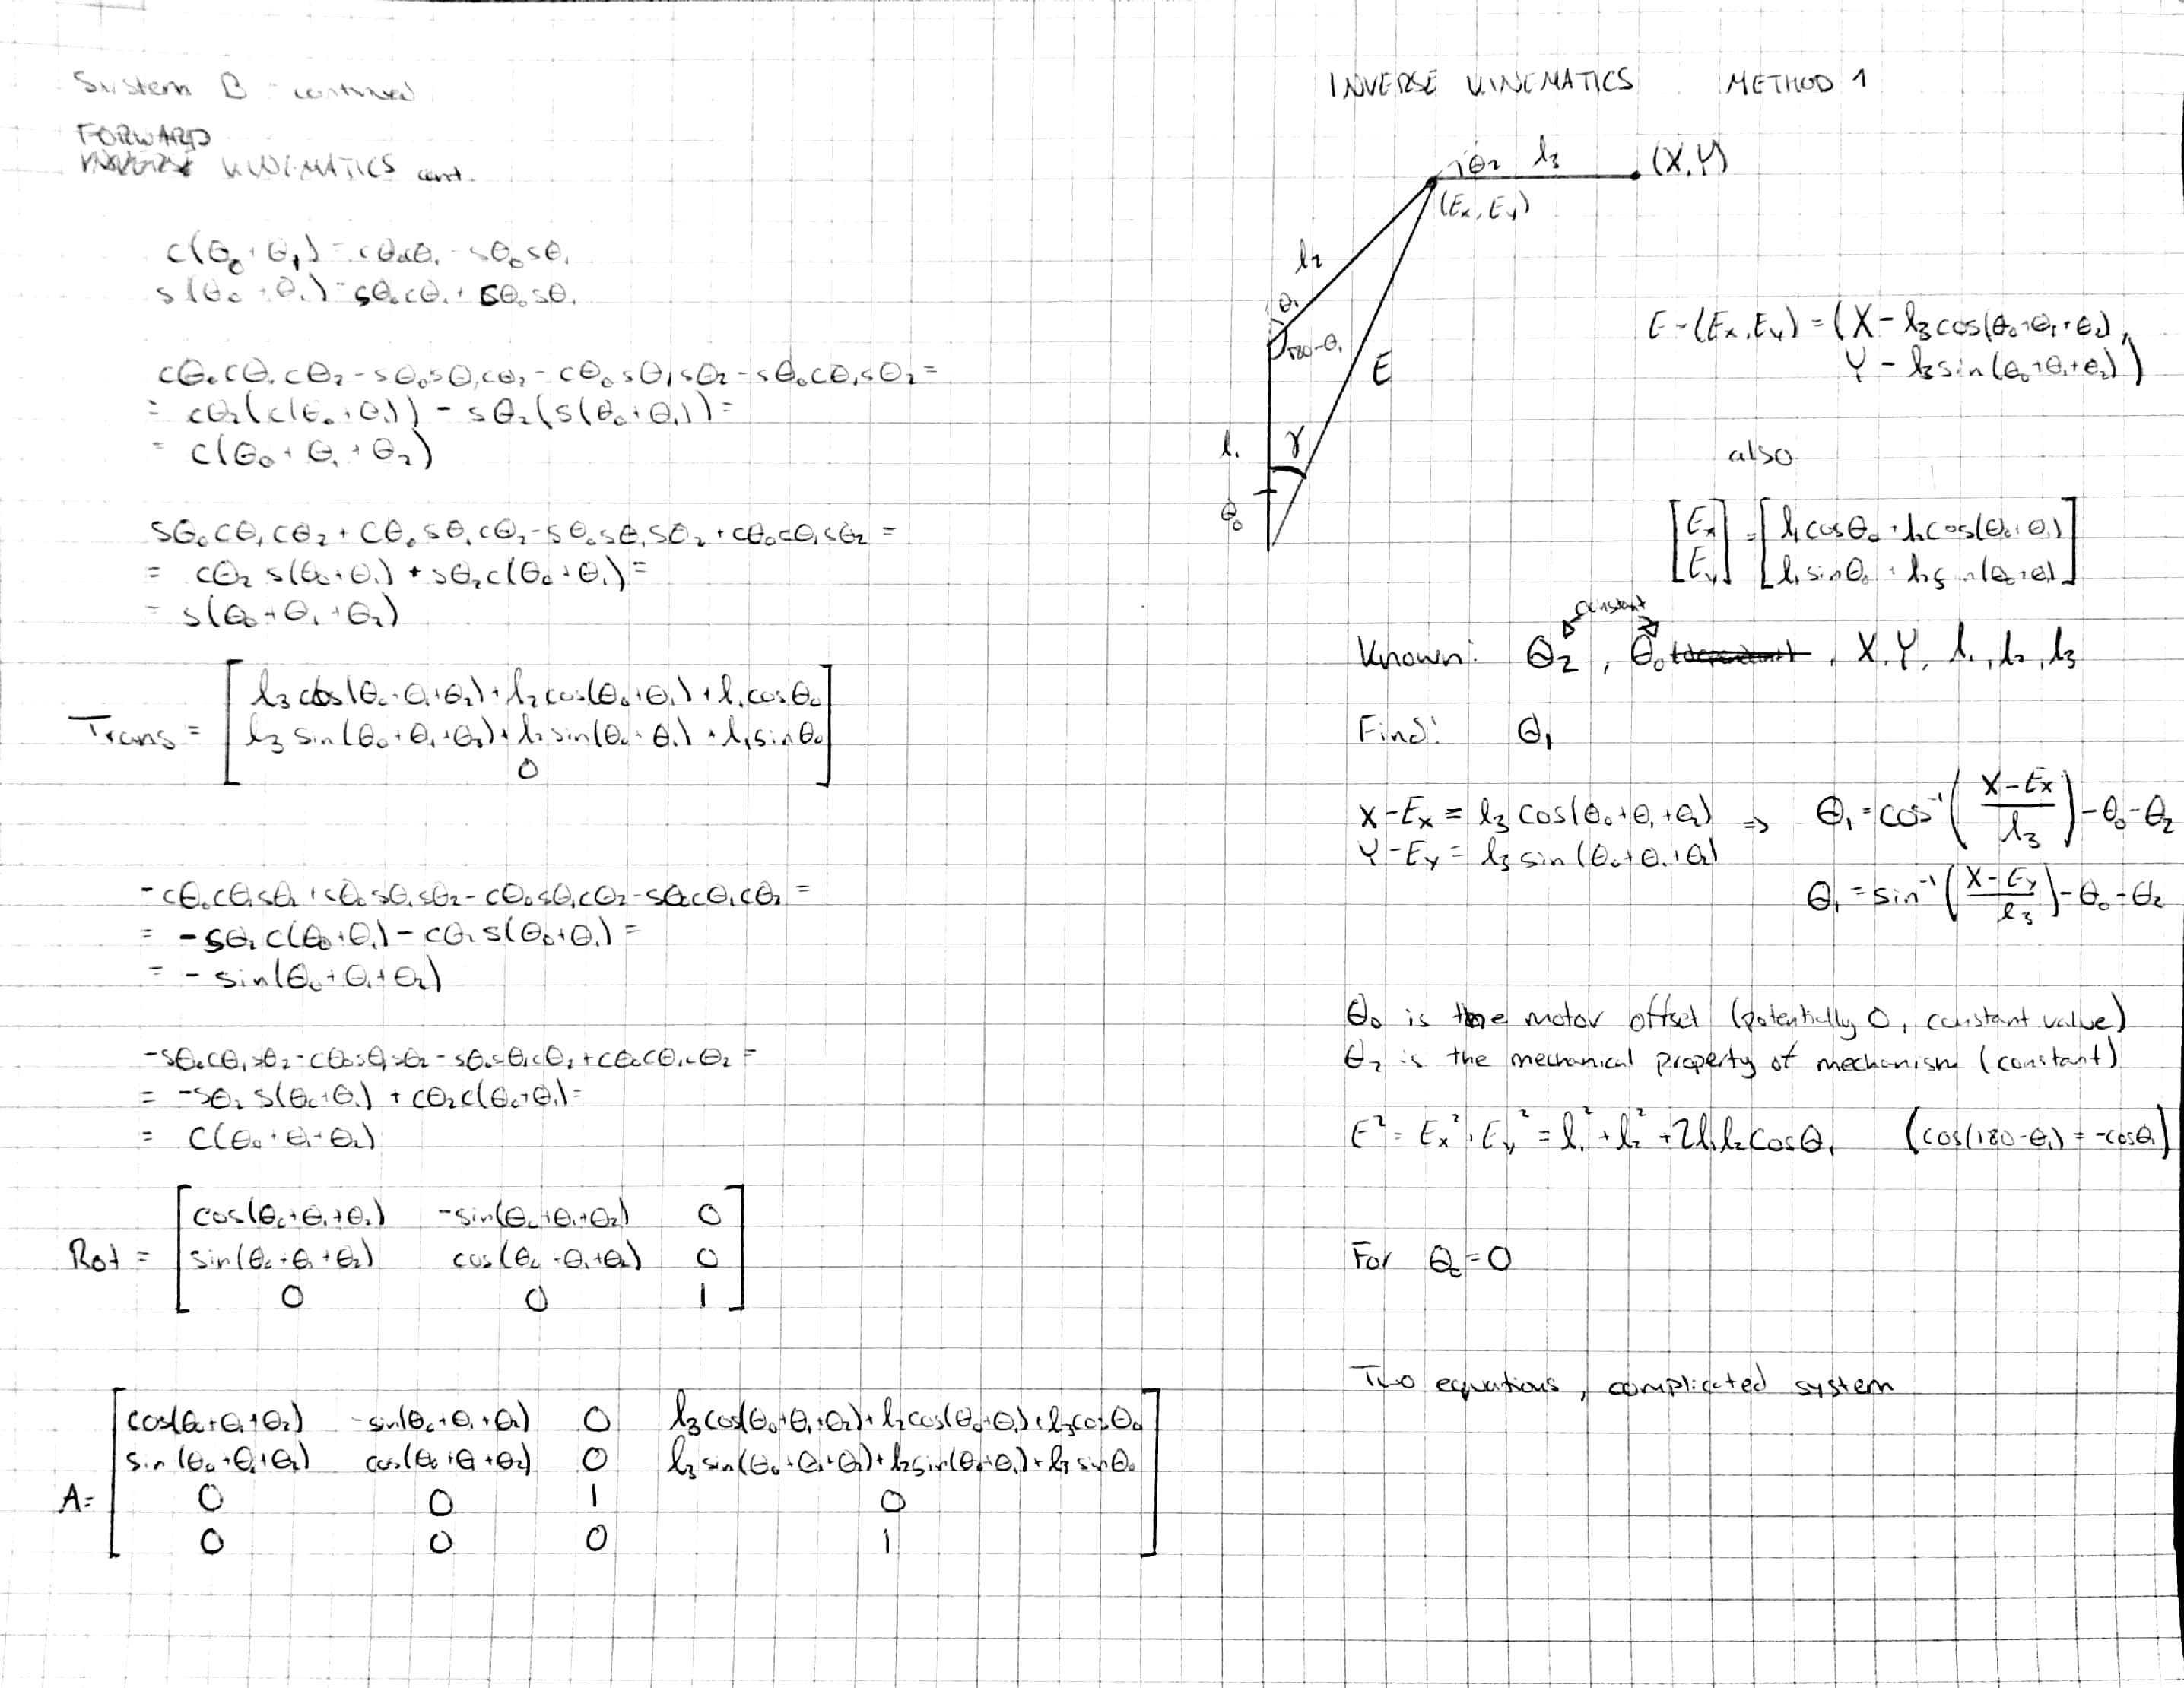 System B - continued
FORWARD
KINEMATICS cont.
c(θ₀+θ₁) = cθ₀cθ₁ - sθ₀sθ₁
s(θ₀+θ₁) = sθ₀cθ₁ + sθ₀sθ₁
cθ₀cθ₁cθ₂ - sθ₀sθ₁cθ₂ - cθ₀sθ₁sθ₂ - sθ₀cθ₁sθ₂ =
= cθ₂(c(θ₀+θ₁)) - sθ₂(s(θ₀+θ₁)) =
= c(θ₀+θ₁+θ₂)
sθ₀cθ₁cθ₂ + cθ₀sθ₁cθ₂ - sθ₀sθ₁sθ₂ + cθ₀cθ₁sθ₂ =
= cθ₂ s(θ₀+θ₁) + sθ₂c(θ₀+θ₁) =
= s(θ₀+θ₁+θ₂)
Trans = [ l₃ cos(θ₀+θ₁+θ₂) + l₂ cos(θ₀+θ₁) + l₁ cosθ₀
l₃ sin(θ₀+θ₁+θ₂) + l₂ sin(θ₀+θ₁) + l₁ sinθ₀
0 ]
-cθ₀cθ₁sθ₂ + sθ₀sθ₁sθ₂ - cθ₀sθ₁cθ₂ - sθ₀cθ₁cθ₂ =
= -sθ₂ c(θ₀+θ₁) - cθ₂ s(θ₀+θ₁) =
= - sin(θ₀+θ₁+θ₂)
-sθ₀cθ₁sθ₂ - cθ₀sθ₁sθ₂ - sθ₀sθ₁cθ₂ + cθ₀cθ₁cθ₂ =
= -sθ₂ s(θ₀+θ₁) + cθ₂c(θ₀+θ₁) =
= c(θ₀+θ₁+θ₂)
Rot = [ cos(θ₀+θ₁+θ₂) -sin(θ₀+θ₁+θ₂) 0
sin(θ₀+θ₁+θ₂) cos(θ₀+θ₁+θ₂) 0
0 0 1 ]
A = [ cos(θ₀+θ₁+θ₂) -sin(θ₀+θ₁+θ₂) 0 l₃cos(θ₀+θ₁+θ₂)+l₂cos(θ₀+θ₁)+l₃cosθ₀
sin(θ₀+θ₁+θ₂) cos(θ₀+θ₁+θ₂) 0 l₃sin(θ₀+θ₁+θ₂)+l₂sin(θ₀+θ₁)+l₃sinθ₀
0 0 1 0
0 0 0 1 ]
INVERSE KINEMATICS METHOD 1
θ₂ l₃ (X,Y)
(Ex, Ey)
l₂
θ₁
180-θ₁
E
l₁ γ
θ₀
E = (Ex, Ey) = (X - l₃cos(θ₀+θ₁+θ₂),
Y - l₃sin(θ₀+θ₁+θ₂))
also
[Ex] = [l₁cosθ₀ + l₂cos(θ₀+θ₁)]
[Ey] [l₁sinθ₀ + l₂sin(θ₀+θ₁)]
constant
Known: θ₂, θ₀, X, Y, l₁, l₂, l₃
Find: θ₁
X-Ex = l₃ cos(θ₀+θ₁+θ₂) ⇒ θ₁ = cos⁻¹((X-Ex)/l₃) - θ₀ - θ₂
Y-Ey = l₃ sin(θ₀+θ₁+θ₂)
θ₁ = sin⁻¹((X-Ey)/l₃) - θ₀ - θ₂
θ₀ is the motor offset (potentially 0, constant value)
θ₂ is the mechanical property of mechanism (constant)
E² = Ex² + Ey² = l₁² + l₂² + 2l₁l₂cosθ₁ (cos(180-θ₁) = -cosθ₁)
For θ₀ = 0
Two equations, complicated system